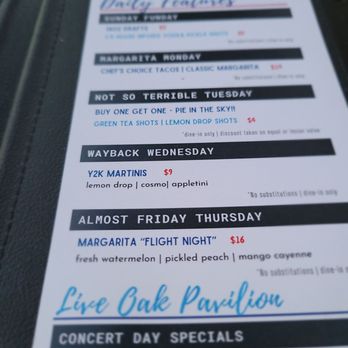 Daily Features
SUNDAY FUNDAY
MARGARITA MONDAY
CHEF'S CHOICE TACOS | CLASSIC MARGARITA
*No substitutions | dine-in only
NOT SO TERRIBLE TUESDAY
BUY ONE GET ONE - PIE IN THE SKY!!
GREEN TEA SHOTS | LEMON DROP SHOTS $4
*dine-in only | discount taken on equal or lesser value
WAYBACK WEDNESDAY
Y2K MARTINIS $9
lemon drop | cosmo | appletini
*No substitutions | dine-in only
ALMOST FRIDAY THURSDAY
MARGARITA "FLIGHT NIGHT" $16
fresh watermelon | pickled peach | mango cayenne
*No substitutions | dine-in
Live Oak Pavilion
CONCERT DAY SPECIALS